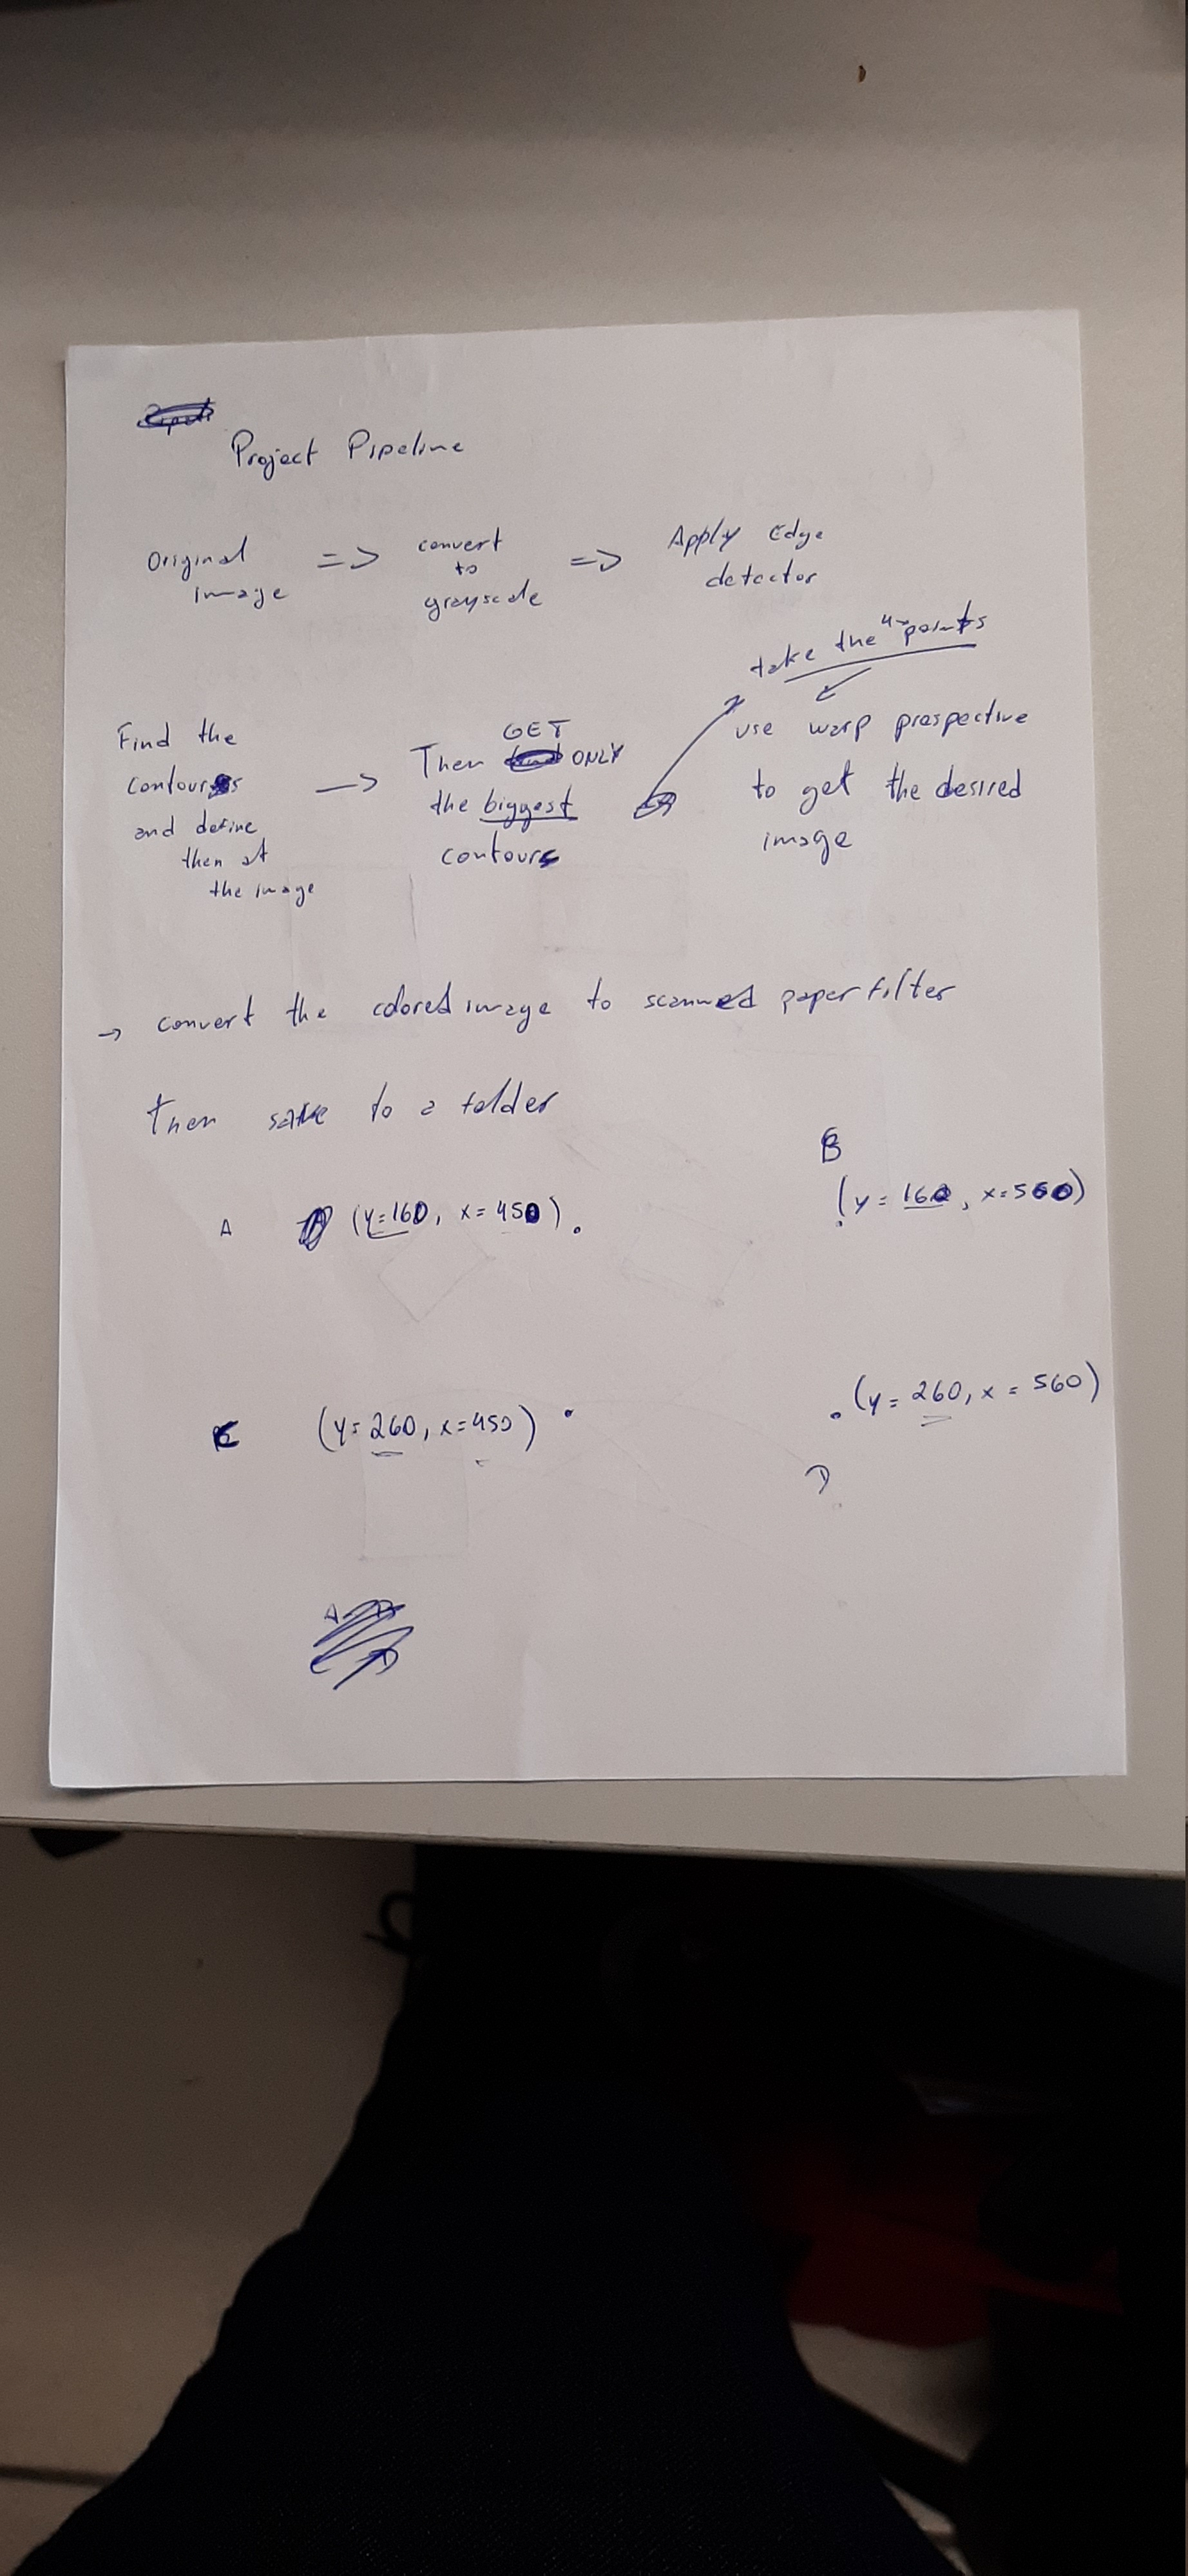 Project Pipeline
Original image => convert to grayscale => Apply Edge detector
take the 4 points
Find the contours and define then at the image -> Then GET ONLY the biggest contours
use warp prespective to get the desired image
-> convert the colored image to scanned paper filter
then save to a folder
B
A (y=160, x=450) . (y=160, x=560)
C (y=260, x=450) . . (y=260, x=560)
D